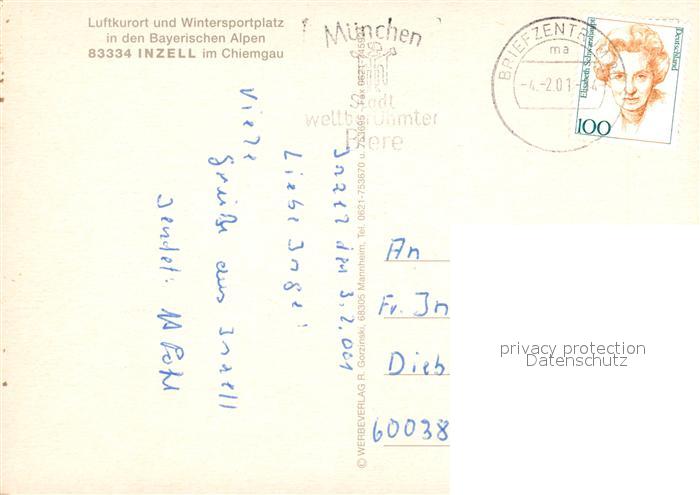 Luftkurort und Wintersportplatz
in den Bayerischen Alpen
83334 INZELL im Chiemgau
München
Stadt
weltberühmter
Biere
BRIEFZENTR
ma
-4.-2.01-
Elisabeth Schwarzhaupt
Deutschland
100
© WERBEVERLAG R. Gorzinski, 68305 Mannheim, Tel. 0621-753670 u. 753695, Fax 0621-74593
Inzell den 3.2.001
Liebe Inge!
Viele
Grüße aus Inzell
sendet:
An
Fr. In
Dieb
60038
privacy protection
Datenschutz